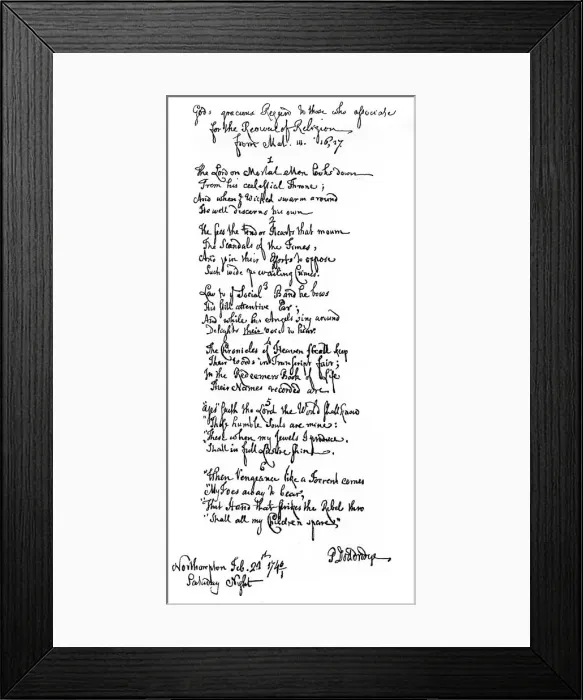 Gods gracious Regard to those who associate
for the Revival of Religion
from Mal. III. 16, 17
1
The Lord on Mortal Men looks down
From his cœlestial Throne;
And when ye Wicked swarm around
He well discerns his own
2
He sees the tender Hearts that mourn
The Scandals of the Times,
And join their Efforts to oppose
Such wide prevailing Crimes.
3
Low to ye Social Band he bows
His still attentive Ear;
And while his Angels sing around
Delights their voice to hear.
4
The Chronicles of Heaven shall keep
Their Words in Transcript fair;
In the Redeemers Book of Life
Their Names recorded are
5
"Yes" saith the Lord the World shall know
"These humble Souls are mine:
"These when my Jewels I produce.
"Shall in full Lustre shine.
6
"When Vengeance like a Torrent comes
"My Foes away to bear,
"That Hand that strikes the Rebels thro
"Shall all my Children spare."
P Doddridge
Northampton Feb. 21st 1740/1
Saturday Night